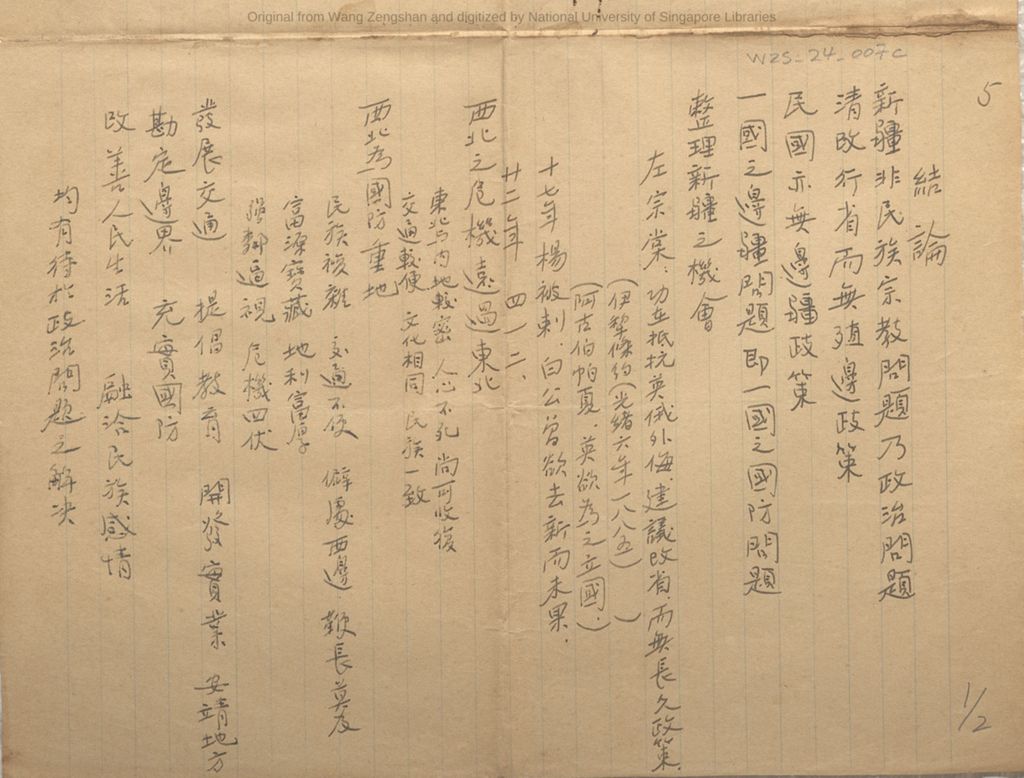 Original from Wang Zengshan and digitized by National University of Singapore Libraries
WZS_24_007c
5
結論
新疆非民族宗教問題乃政治問題
清改行省而無殖邊政策
民國亦無邊疆政策
一國之邊疆問題即一國之國防問題
整理新疆之機會
左宗棠．功在抵抗英俄外侮．建議改省．而無長久政策．
(伊犁條約(光緒六年一八八五) )
(阿古伯帕夏．英欲為之立國．)
十七年楊被刺．白公曾欲去新而未果．
廿二年 四一二．
西北之危機遠過東北
東北与內地較密 人心不死 尚可收復
交通較便 文化相同 民族一致
西北為國防重地
民族複雜 交通不便 僻處西邊 鞭長莫及
富源寶藏 地利富厚
強鄰逼視 危機四伏
發展交通 提倡教育 開發實業 安靖地方
勘定邊界 充實國防
改善人民生活 融洽民族感情
均有待於政治問題之解決
1/2